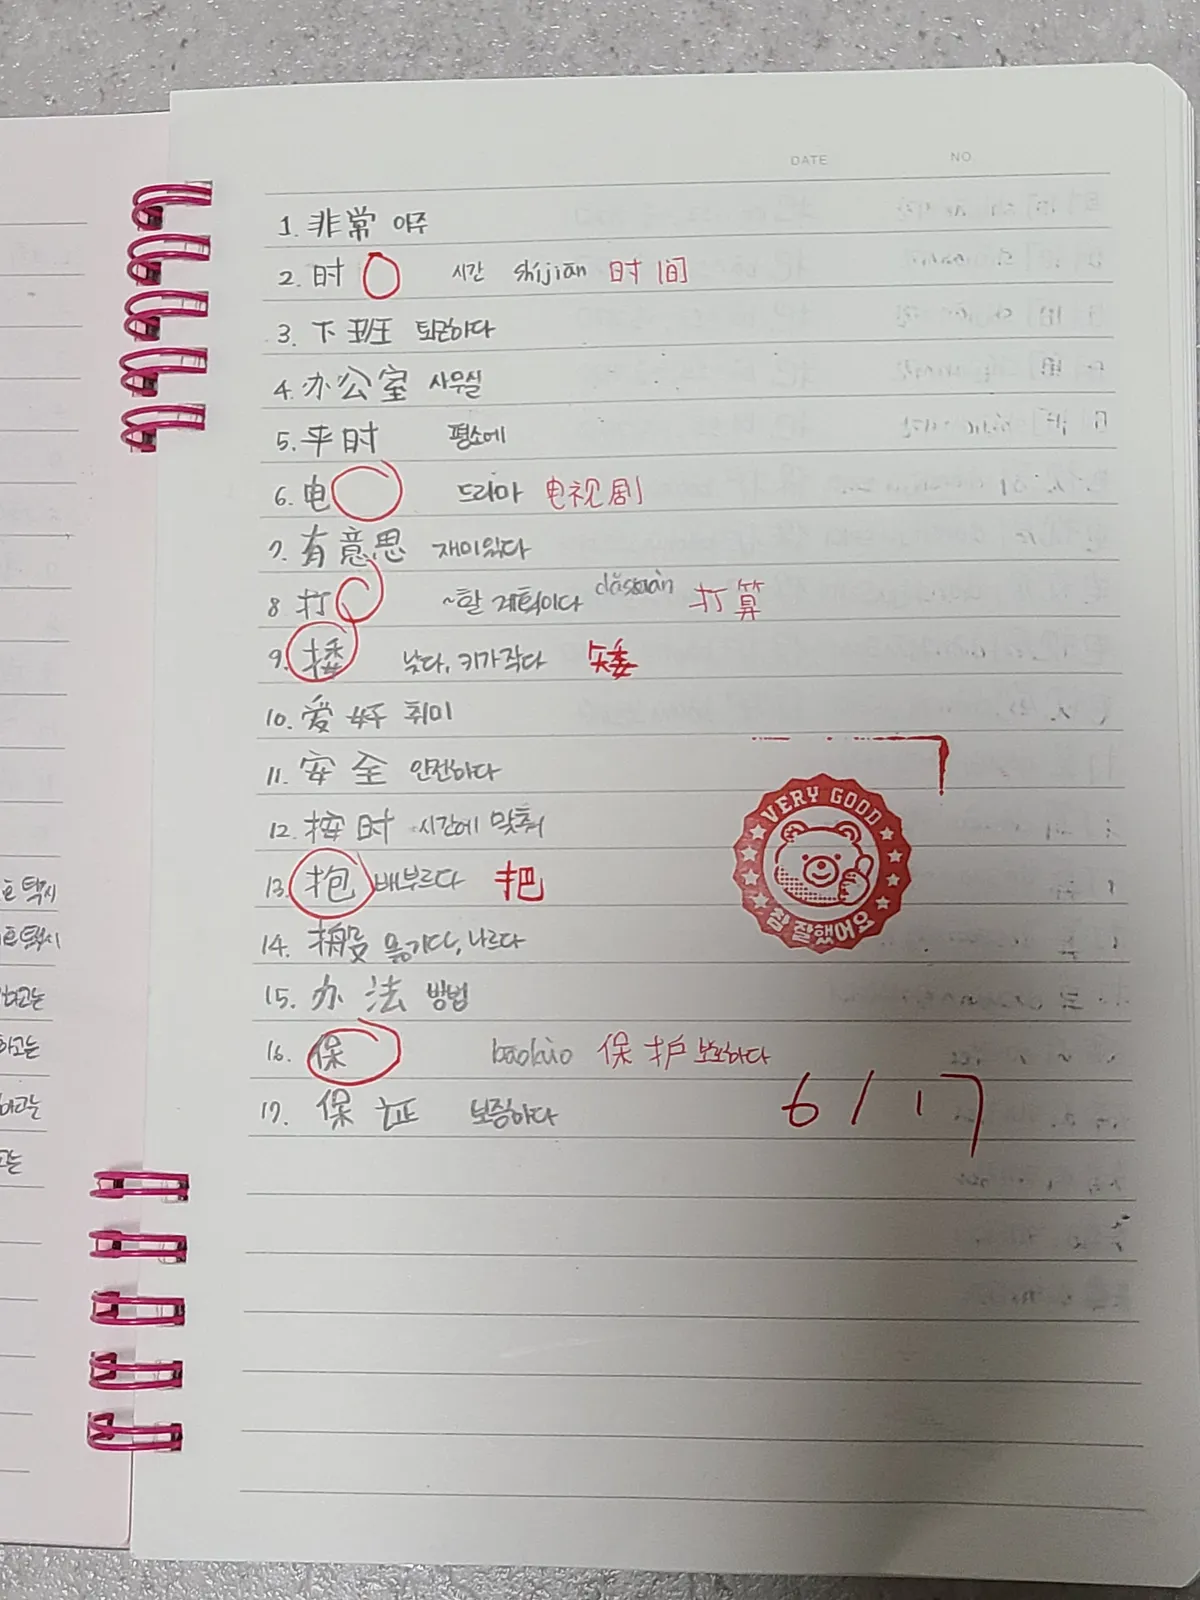 DATE NO
1. 非常 아주
2. 时 시간 shíjiān 时间
3. 下班 퇴근하다
4. 办公室 사무실
5. 平时 평소에
6. 电 드라마 电视剧
7. 有意思 재미있다
8 打 ~할 계획이다 dǎsuàn 打算
9. 낮다, 키가작다 矮
10. 爱好 취미
11. 安全 안전하다
12. 按时 시간에 맞춰
13. 抱 배부르다 把
14. 搬 옮기다, 나르다
15. 办法 방법
16. 保 保护 보호하다
17. 保证 보증하다
VERY GOOD
참 잘했어요
6/17
택시
택시
하고는
하고는
하고는